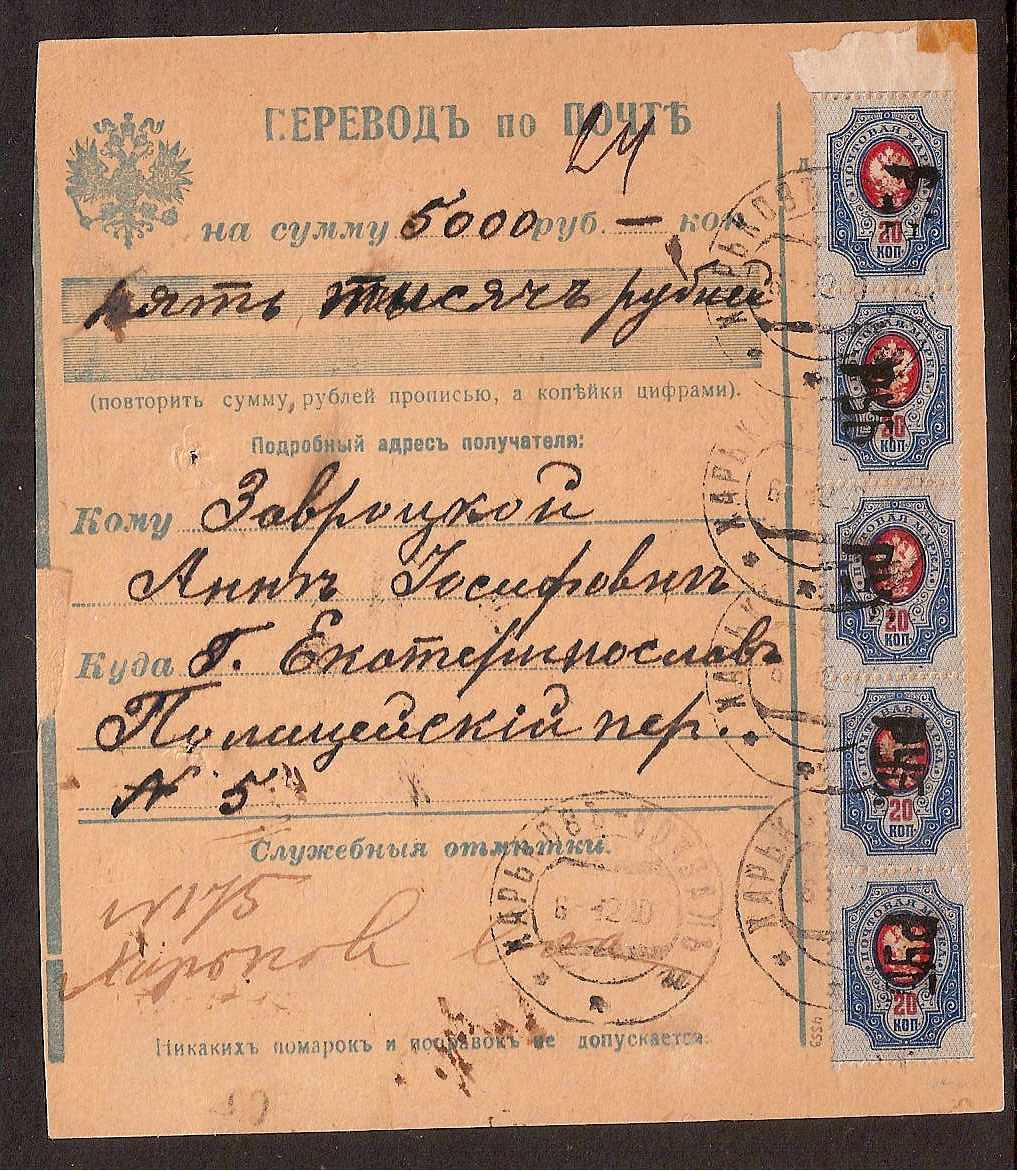 ПЕРЕВОДЪ по ПОЧТѢ
24
на сумму 5000 руб. — коп.
пять тысячъ рублей
(повторить сумму рублей прописью, а копѣйки цифрами).
Подробный адресъ получателя:
Кому Завроцкой
Аннѣ Іосифовнѣ
Куда Г. Екатеринославъ
Полицейскій пер.
N 5
Служебныя отмѣтки.
N 175
Никакихъ помарокъ и поправокъ не допускается.
ПОЧТОВАЯ МАРКА
20
КОП
ПОЧТОВАЯ МАРКА
20
КОП
руб
ПОЧТОВАЯ МАРКА
20
КОП
руб
ПОЧТОВАЯ МАРКА
20
КОП
руб
ПОЧТОВАЯ МАРКА
20
КОП
руб
ХАРЬКОВЪ
ХАРЬК
ХАРЬК
ХАРЬК
ХАРЬКОВЪ